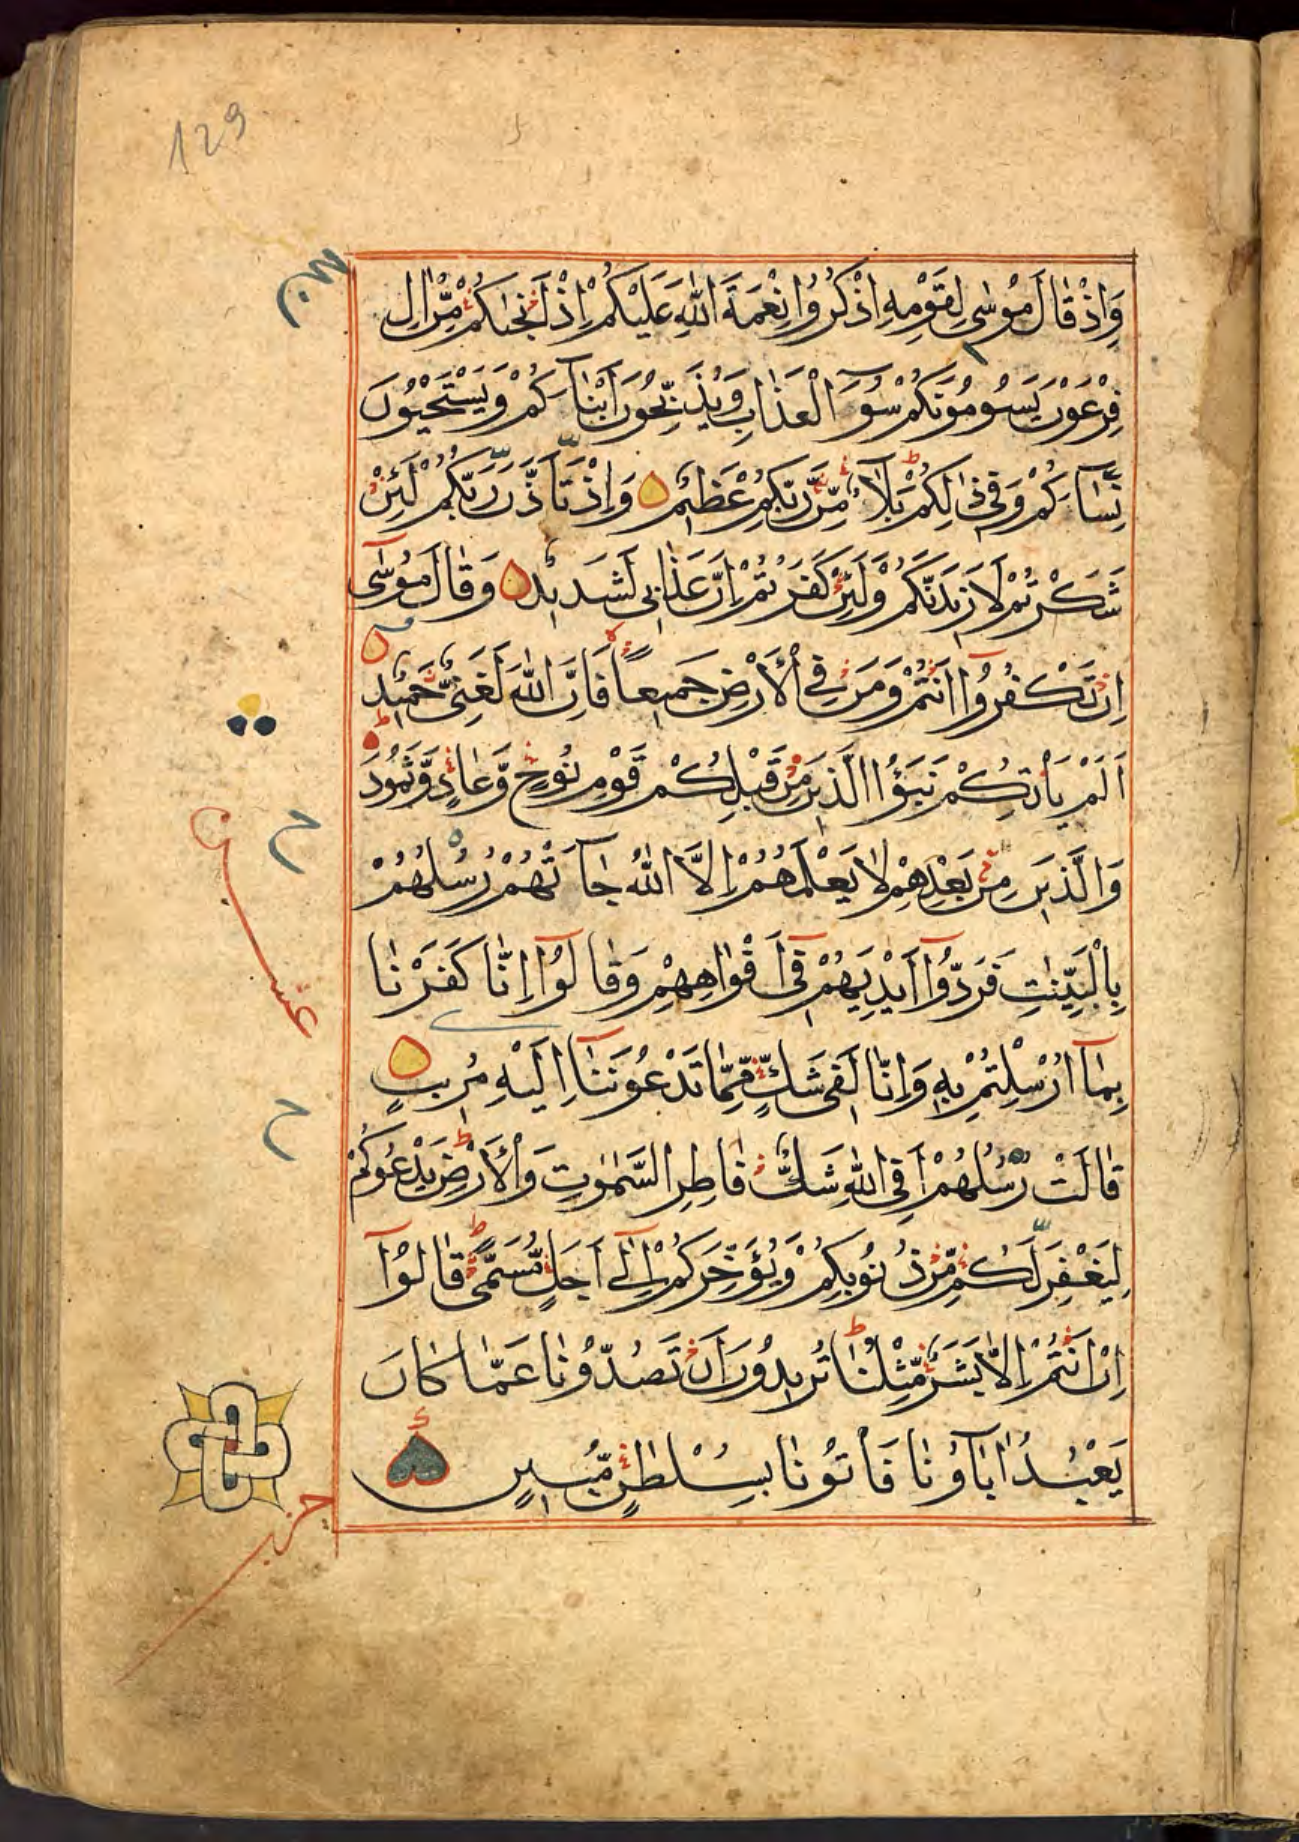 129
وَاِذْ قَالَ مُوْسٰى لِقَوْمِهِ اذْكُرُوْا نِعْمَةَ اللّٰهِ عَلَيْكُمْ اِذْ اَنْجٰىكُمْ مِّنْ اٰلِ
فِرْعَوْنَ يَسُوْمُوْنَكُمْ سُوْٓءَ الْعَذَابِ وَيُذَبِّحُوْنَ اَبْنَآءَكُمْ وَيَسْتَحْيُوْنَ
نِسَآءَكُمْ وَفِيْ ذٰلِكُمْ بَلَآءٌ مِّنْ رَّبِّكُمْ عَظِيْمٌ وَاِذْ تَاَذَّنَ رَبُّكُمْ لَئِنْ
شَكَرْتُمْ لَاَزِيْدَنَّكُمْ وَلَئِنْ كَفَرْتُمْ اِنَّ عَذَابِيْ لَشَدِيْدٌ وَقَالَ مُوْسٰٓى
اِنْ تَكْفُرُوْٓا اَنْتُمْ وَمَنْ فِي الْاَرْضِ جَمِيْعًا فَاِنَّ اللّٰهَ لَغَنِيٌّ حَمِيْدٌ
اَلَمْ يَاْتِكُمْ نَبَؤُا الَّذِيْنَ مِنْ قَبْلِكُمْ قَوْمِ نُوْحٍ وَّعَادٍ وَّثَمُوْدَ
وَالَّذِيْنَ مِنْ بَعْدِهِمْ لَا يَعْلَمُهُمْ اِلَّا اللّٰهُ جَآءَتْهُمْ رُسُلُهُمْ
بِالْبَيِّنٰتِ فَرَدُّوْٓا اَيْدِيَهُمْ فِيْٓ اَفْوَاهِهِمْ وَقَالُوْٓا اِنَّا كَفَرْنَا
بِمَآ اُرْسِلْتُمْ بِهٖ وَاِنَّا لَفِيْ شَكٍّ مِّمَّا تَدْعُوْنَنَآ اِلَيْهِ مُرِيْبٍ
قَالَتْ رُسُلُهُمْ اَفِي اللّٰهِ شَكٌّ فَاطِرِ السَّمٰوٰتِ وَالْاَرْضِ يَدْعُوْكُمْ
لِيَغْفِرَ لَكُمْ مِّنْ ذُنُوْبِكُمْ وَيُؤَخِّرَكُمْ اِلٰٓى اَجَلٍ مُّسَمًّى قَالُوْٓا
اِنْ اَنْتُمْ اِلَّا بَشَرٌ مِّثْلُنَا تُرِيْدُوْنَ اَنْ تَصُدُّوْنَا عَمَّا كَانَ
يَعْبُدُ اٰبَآؤُنَا فَاْتُوْنَا بِسُلْطٰنٍ مُّبِيْنٍ
حزب